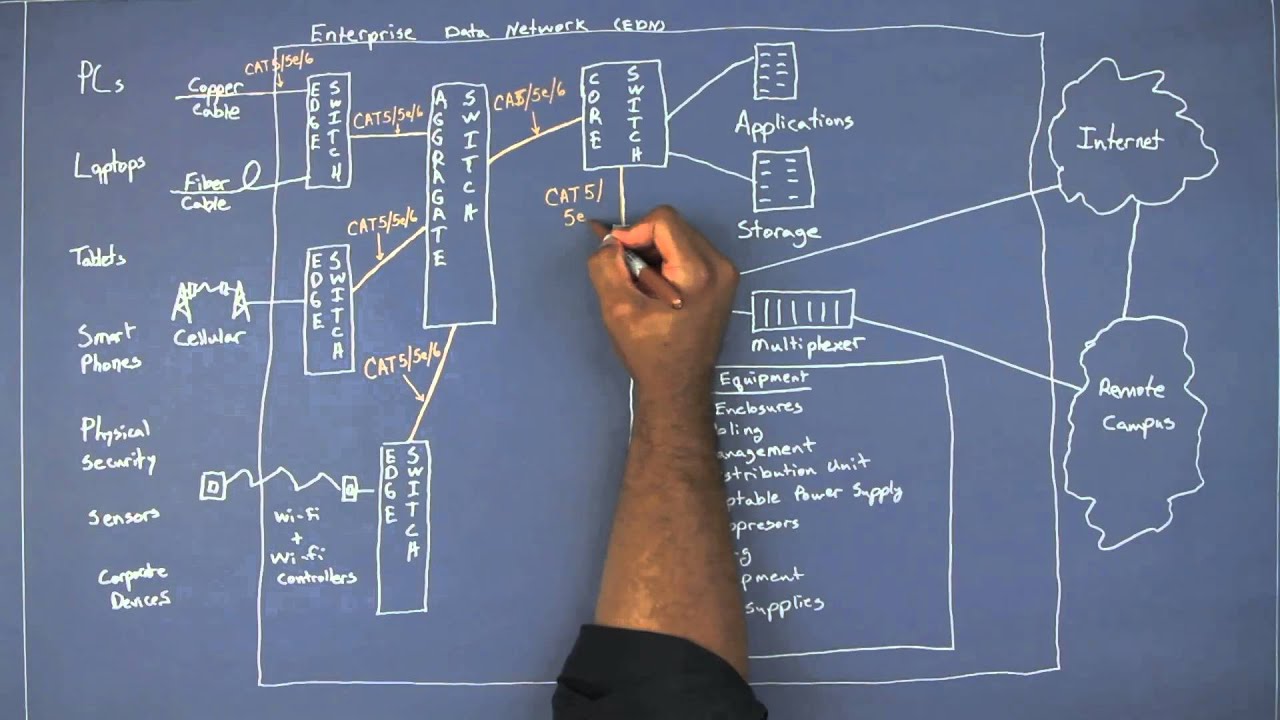 Enterprise Data Network (EDN)
PCs
Laptops
Tablets
Smart
Phones
Physical
Security
Sensors
Corporate
Devices
CAT5/5e/6
Copper
Cable
Fiber
Cable
EDGE
SWITCH
CAT5/5e/6
AGGRAGATE
SWITCH
CAT5/5e/6
CORE
SWITCH
CAT5/5e/6
Cellular
EDGE
SWITCH
CAT5/5e/6
EDGE
SWITCH
Wi-Fi
+
Wi-Fi
Controllers
CAT 5/
5e
Applications
Storage
Multiplexer
Internet
Remote
Campus
Equipment
Enclosures
bling
anagement
stribution Unit
ptable Power Supply
ppresors
g
pment
supplies